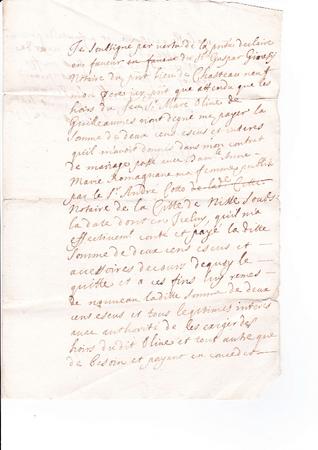 Je soubligé par vertu de la pnte declaire
en faveur en faveur du Sr Gaspar
Notaire du pnt lieu de Chasteau neuf
mon pnt que attendu que les
hoirs du feu Sr Marc Oline de
Guilleaumes mont deyné me payer la
somme de deux cens escus et interes
qu'il m'avoit donnés dans mon contrat
de mariage passé avec dam.lle Anne
Marie Romagnane ma femme, publié
par le Sr André Cotto
Notaire de la Citté de Nisse soubs
la datte dont en Icelui, qu'il m'a
effectivement conté et payé la ditte
somme de deux cens escus et
accessoires decours dequoy le
quitte et a ces fins luy remes
de nouveau laditte somme de deux
cens escus et tous legitimes interes
avec authorité de les exiger des
hoirs dudit Oline et tout autre que
de besoin et payant en conceder